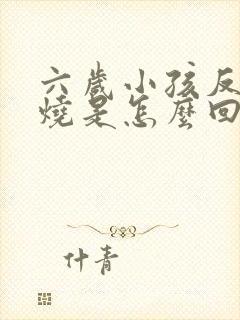 六歲小孩反
燒是怎麼回
什青